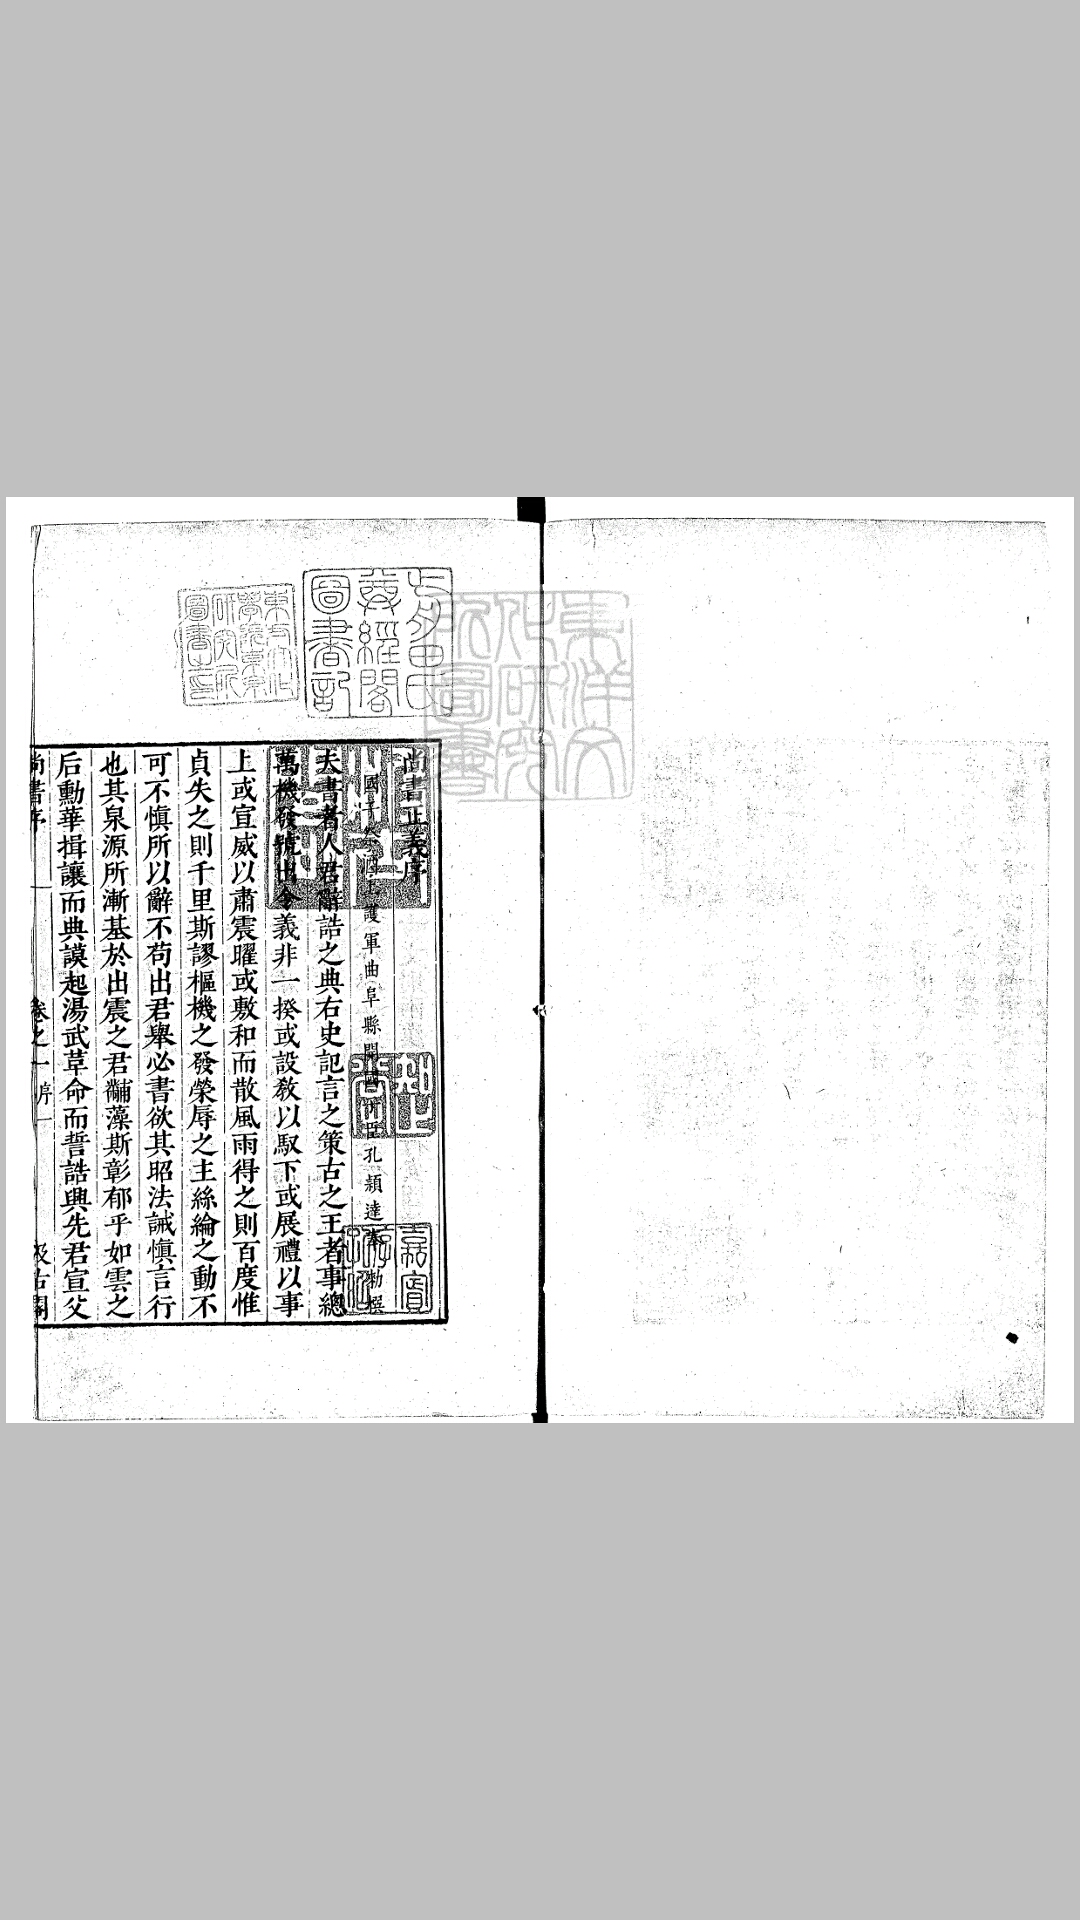 尚書正義序
國子祭酒上護軍曲阜縣開國子臣孔穎達奉勅撰
夫書者人君辭誥之典右史記言之策古之王者事總
萬機發號出令義非一揆或設敎以馭下或展禮以事
上或宣威以肅震曜或敷和而散風雨得之則百度惟
貞失之則千里斯謬樞機之發榮辱之主絲綸之動不
可不慎所以辭不苟出君舉必書欲其昭法誡慎言行
也其泉源所漸基於出震之君黼藻斯彰郁乎如雲之
后勳華揖讓而典謨起湯武革命而誓誥興先君宣父
尚書序
卷之一
序一
汲古閣
東方文化
學院京都
研究所
圖書之印
尊經閣
圖書記
東洋文
化研究
所圖書